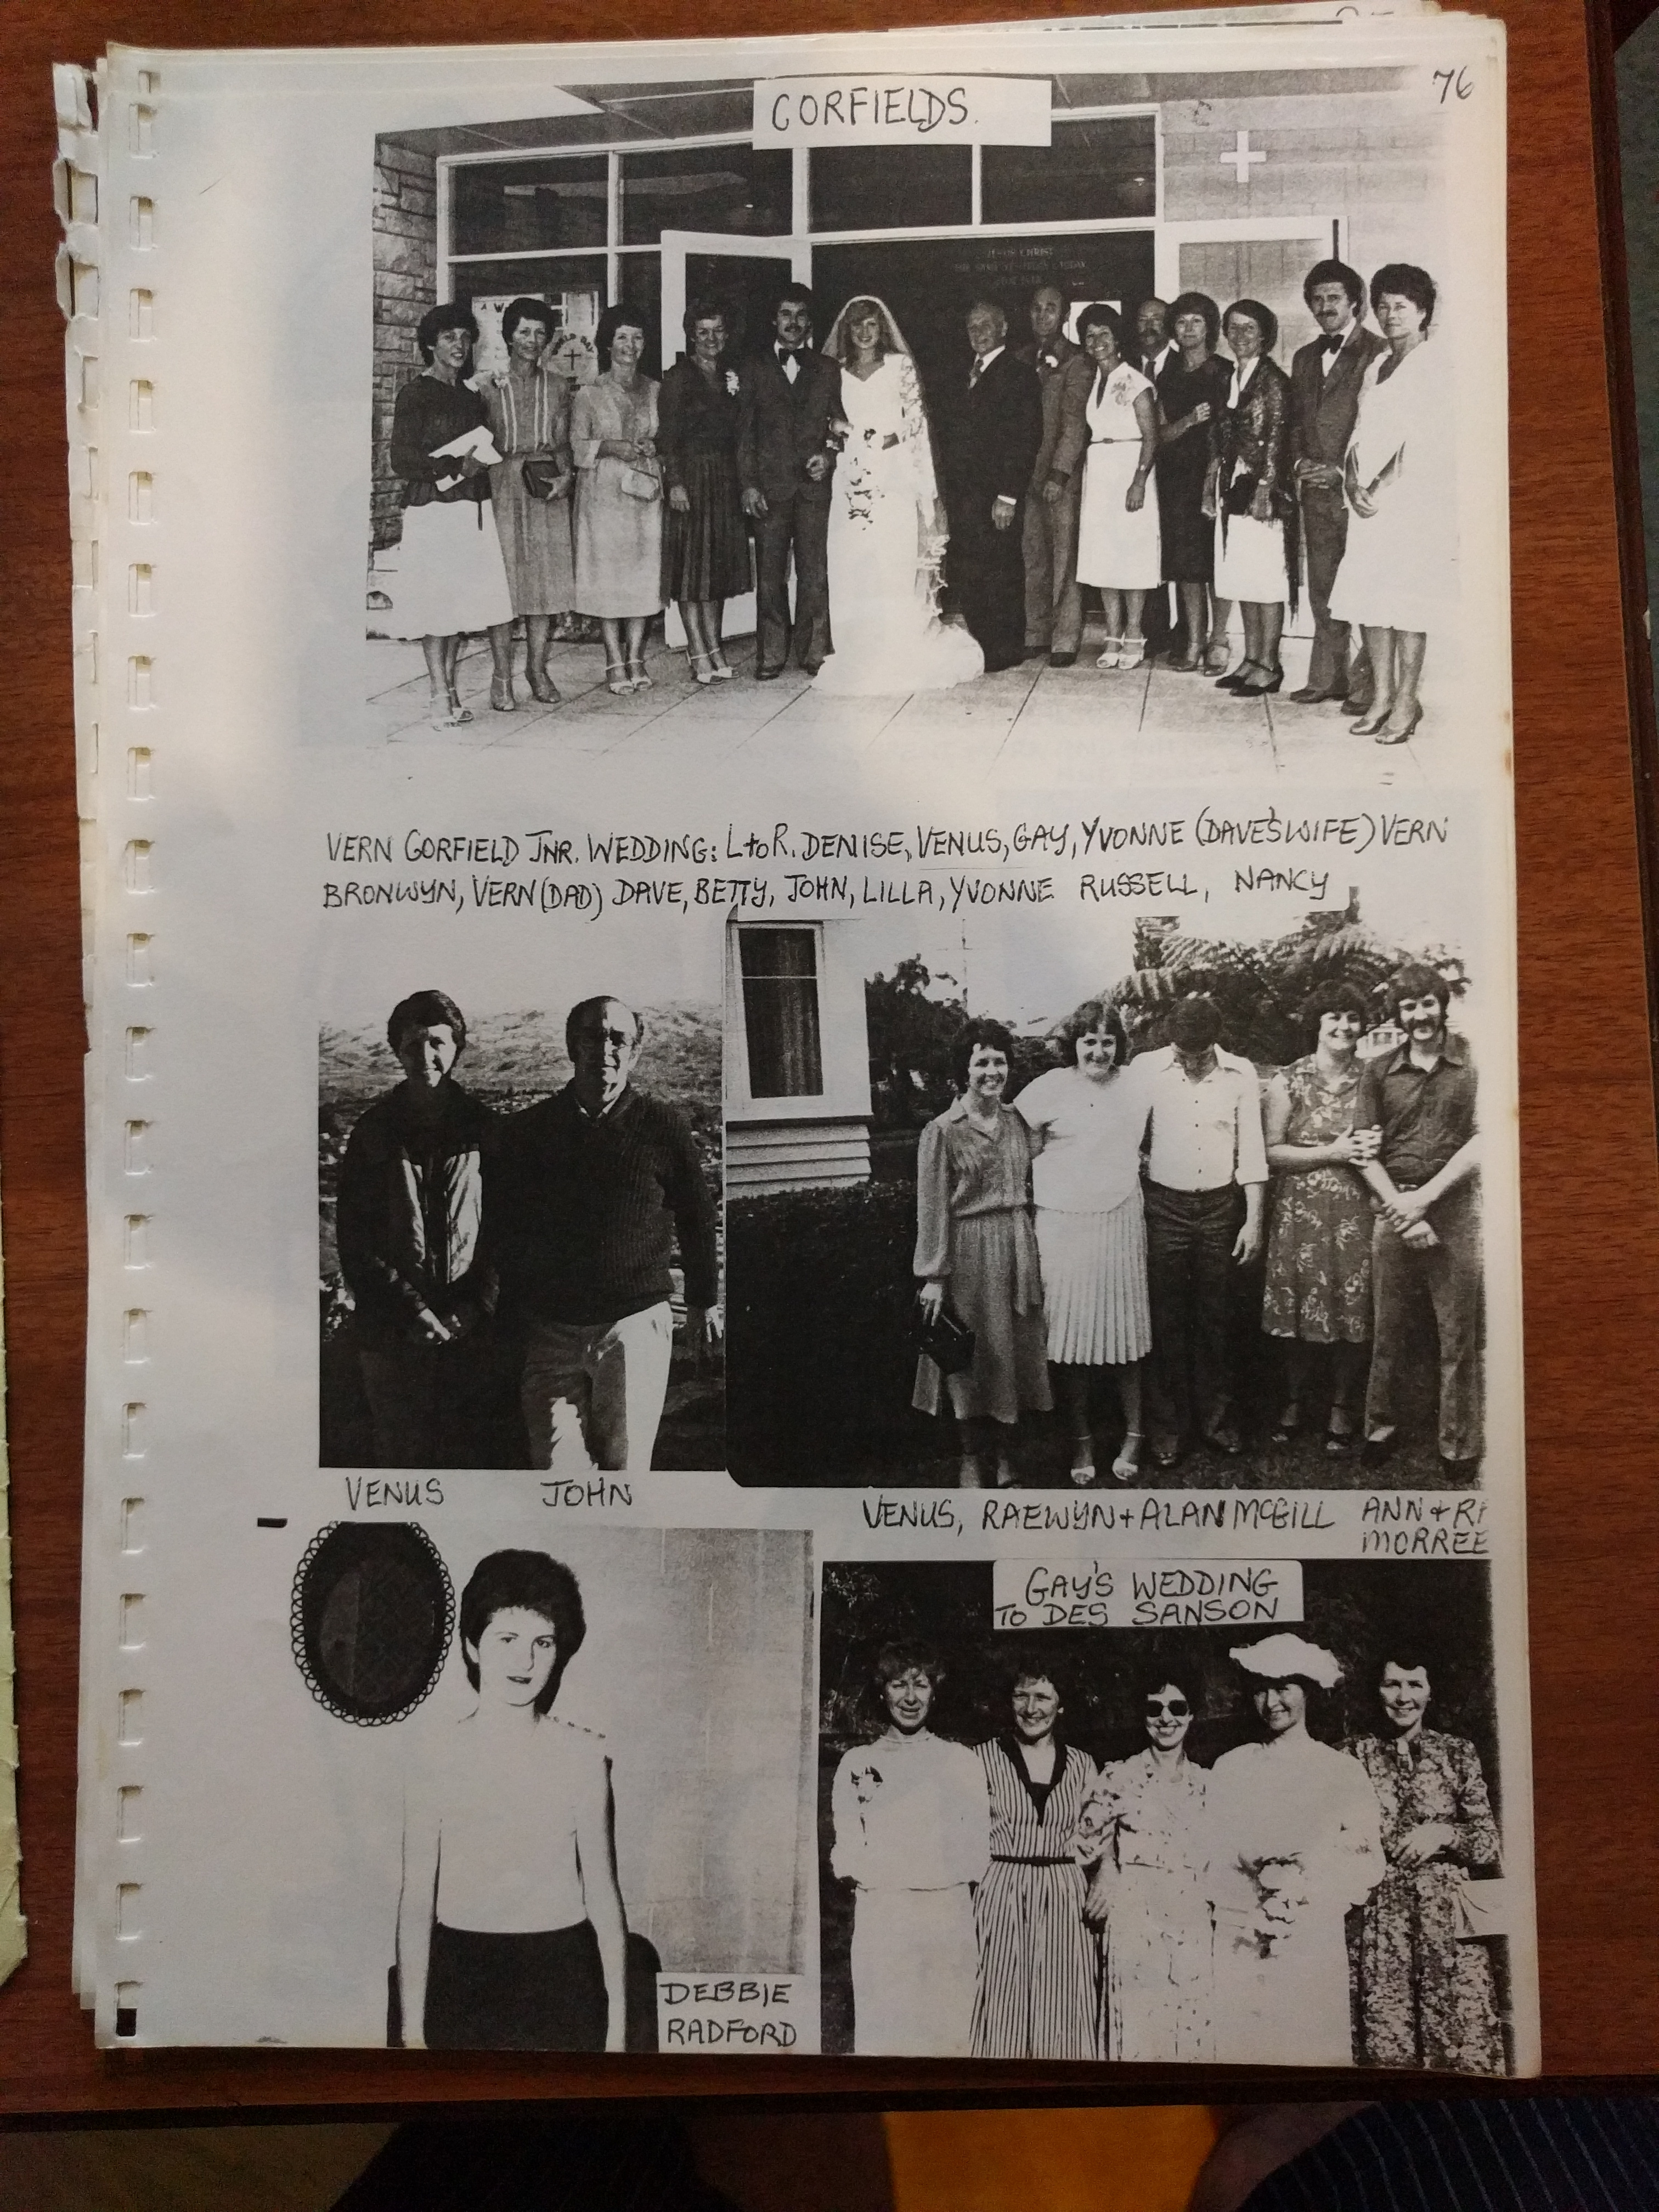 76
CORFIELDS.
JESUS CHRIST
VERN CORFIELD JNR. WEDDING: L to R. DENISE, VENUS, GAY, YVONNE (DAVE'S WIFE) VERN
BRONWYN, VERN (DAD) DAVE, BETTY, JOHN, LILLA, YVONNE RUSSELL, NANCY
VENUS JOHN
VENUS, RAEWYN + ALAN MCGILL ANN + RI
MORREE
GAY'S WEDDING
TO DES SANSON
DEBBIE
RADFORD